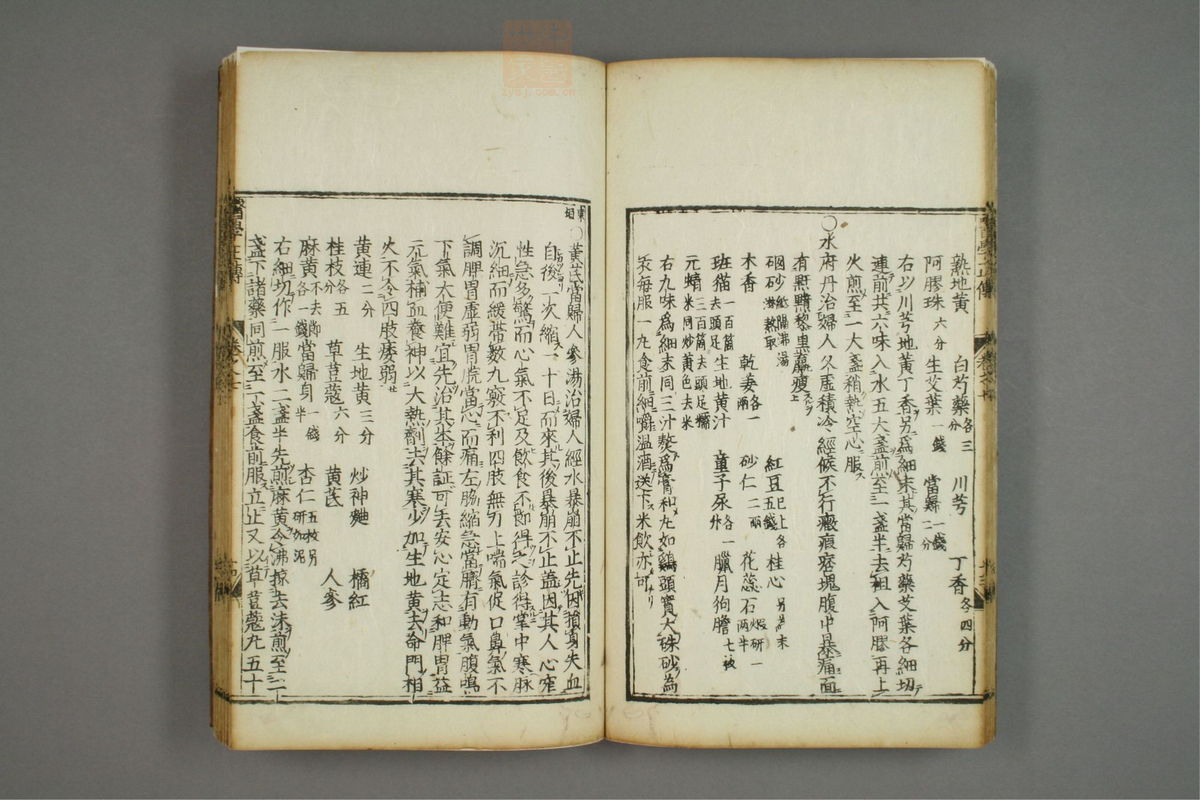 熟地黄 白芍藥各三分 川芎 丁香各四分
阿膠珠六分 生艾葉一錢 當歸一錢二分
右以川芎地黄丁香另爲細末其當歸芍藥艾葉各細切
連前共六味入水五大盞煎至一盞半去柤入阿膠再上
火煎至一大盞稍熱空心服
○水府丹治婦人久虚積冷經候不行癥瘕癖塊腹中暴痛面
有䵟黵黎黒羸瘦
硇砂紙隔沸湯淋熬取 紅豆五錢已上各 桂心另爲末
木香 乾姜各一兩 砂仁二兩 花蕊石煅研一兩半
班猫一百箇去頭足 生地黄汁 童子尿各一升 臘月狗膽七枚
元蜻三百箇去頭足糯米同炒黄色去米
右九味爲細末同三汁熬爲膏和丸如鷄頭實大硃砂爲
衣每服一丸食前細嚼温酒送下米飲亦可
東垣
○黄芪當歸人參湯治婦人經水暴崩不止先因損身失血
自後一次縮一十日而來其後暴崩不止蓋因其人心窄
性急多驚而心氣不足及飲食不節得之診得掌中寒脉
沉細而緩帶數九竅不利四肢無力上喘氣促口鼻氣不
調脾胃虚弱胃脘當心而痛左脇縮急當臍有動氣腹鳴
下氣大便難宜先治其本餘証可去安心定志和脾胃益
元氣補血養神以大熱劑去其寒少加生地黄去命門相
火不令四肢痿弱
黄連二分 生地黄三分 炒神麯 橘紅
桂枝各五分 草荳蔻六分 黄芪 人參
麻黄不去節各一錢 當歸身一錢半 杏仁五枚另研如泥
右細切作一服水二盞半先煎麻黄令沸掠去沫煎至二
盞下諸藥同煎至一盞食前服立止又以草荳蔻丸五十
醫學正傳 卷之七